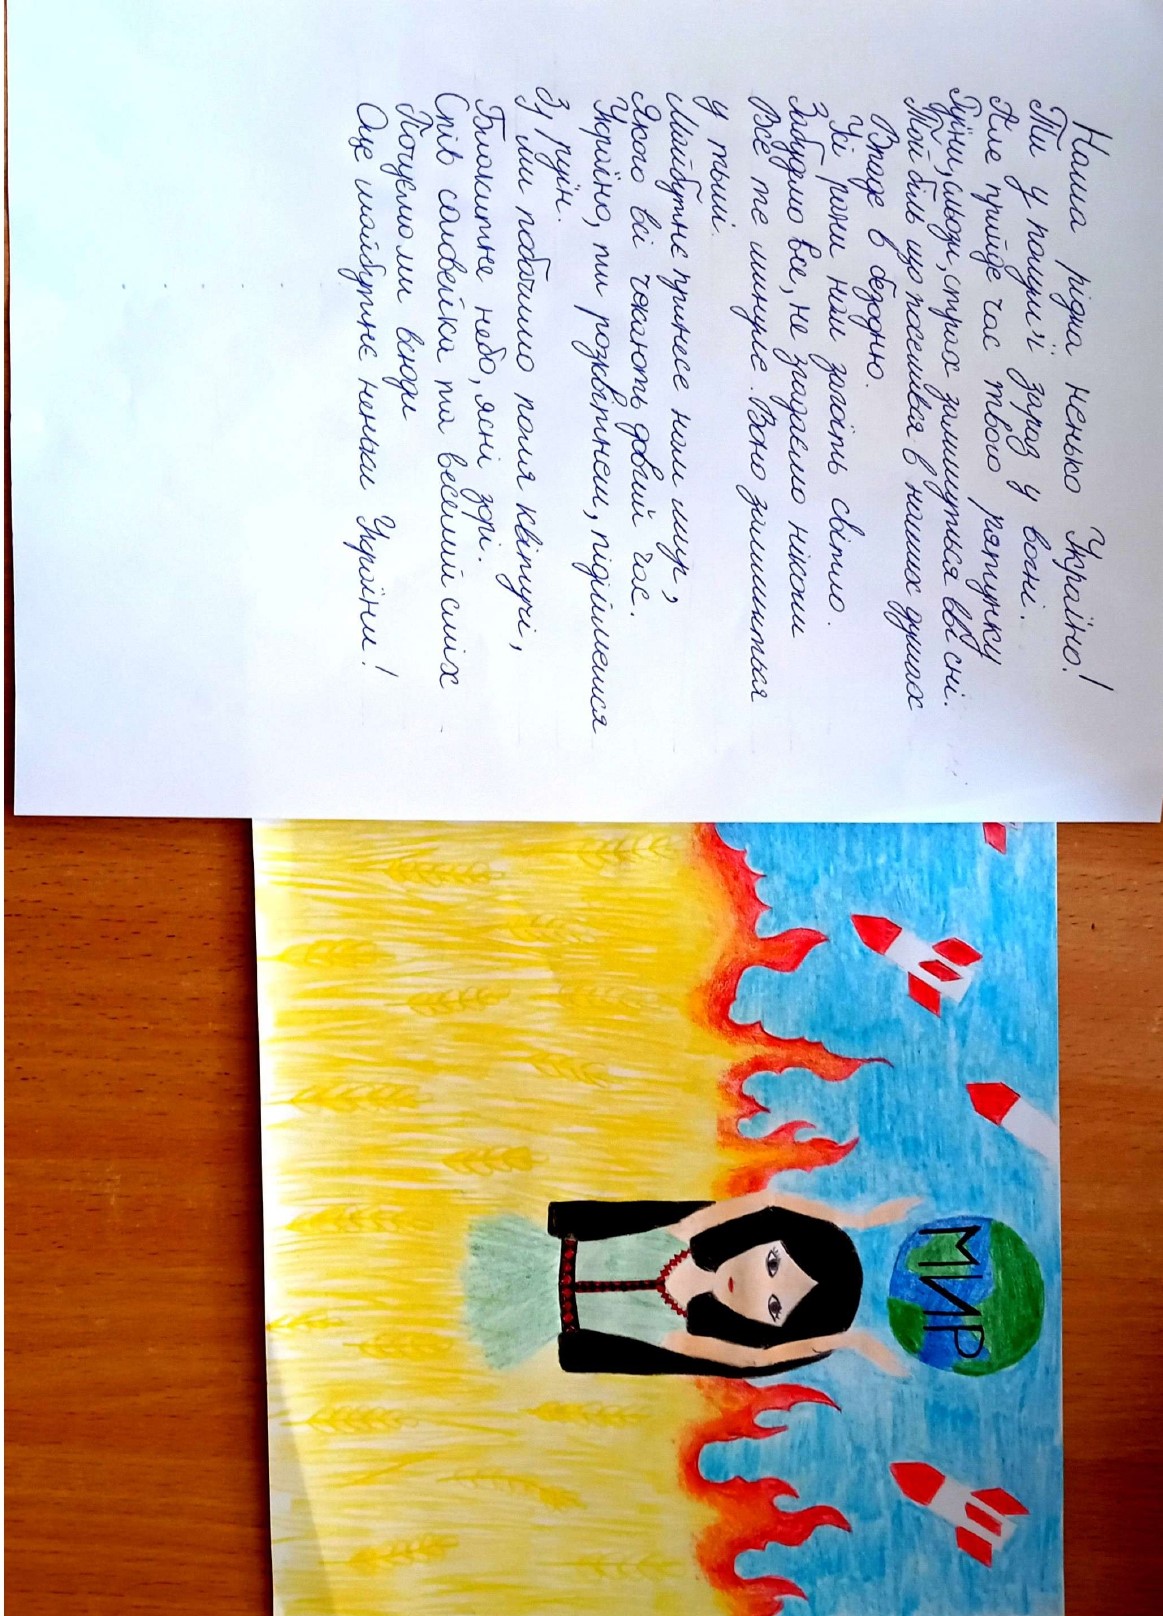 Наша рідна ненько Україно!
Ти у полум'ї зараз у вогні.
Але прийде час твого рятунку
Руїни, сльози, страх залишуться вві сні.
Той біль що поселився в наших душах
Впаде в безодню.
Усі рани нам загоїть світло.
Забудмо все, не згадаємо ніколи
Все те минуле. Воно залишиться
у тьмі.
Майбутнє принесе нам мир,
Якого всі чекають довгий час.
Україно, ти розквітнеш, підіймешся
З руїн.
У ми побачимо поля квітучі,
Блакитне небо, ясні зорі.
Спів соловейка та веселий сміх
Почуємо ми всюди
Оце майбутнє неньки України!
МИР